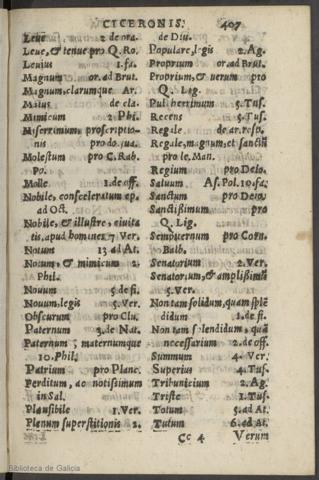 CICERONIS. 407
Leue 2 de ora.
Leue, & tenue pro Q. Ro.
Leuius 1. fa.
Magnum or. ad Brut.
Magnum, clarumque Ar.
Maius de cla.
Mimicum 2 Phi.
Miserrimum, proscriptio-
nis pro do. sua.
Molestum pro C. Rab.
Po.
Molle 1. de off.
Nobile, consceleratum ep.
ad Oct.
Nobile, & illustre, ciuita
tis, apud homines 7 Ver.
Notum 13 ad At.
Notum, & mimicum 2.
Phil.
Nouum 5 de fi.
Nouum, legis 5. Ver.
Obscurum pro Clu.
Paternum 3. de Nat.
Paternum, maternumque
10. Phil.
Patrium pro Planc.
Perditum, ac notissimum
in Sal.
Plausibile 1. Ver.
Plenum superstitionis 2.
de Diu.
Populare, legis 2. Ag.
Proprium or. ad Brut.
Proprium, & uerum pro
Q. Lig.
Pulcherrimum 5. Tus.
Recens 5. Tus.
Regale de ar. resp.
Regale, magnum, et sanctū
pro le. Man.
Regium pro Deio.
Saluum As. Pol. 10. fa.
Sanctum pro Deio.
Sanctissimum pro
Q. Lig.
Sempiternum pro Corn.
Balb.
Senatorium 2. Ver.
Senatorium, & amplissimū
5. Ver.
Non tam solidum, quam splē
didum 1. de fi.
Non tam splendidum, quā
necessarium 2. de off.
Summum 4. Ver.
Superius 4. Tus.
Tribunicium 2. Ag.
Triste 1. Tus.
Totum 5. ad At.
Tutum 6. ad At.
Cc 4 Verum
Biblioteca de Galicia